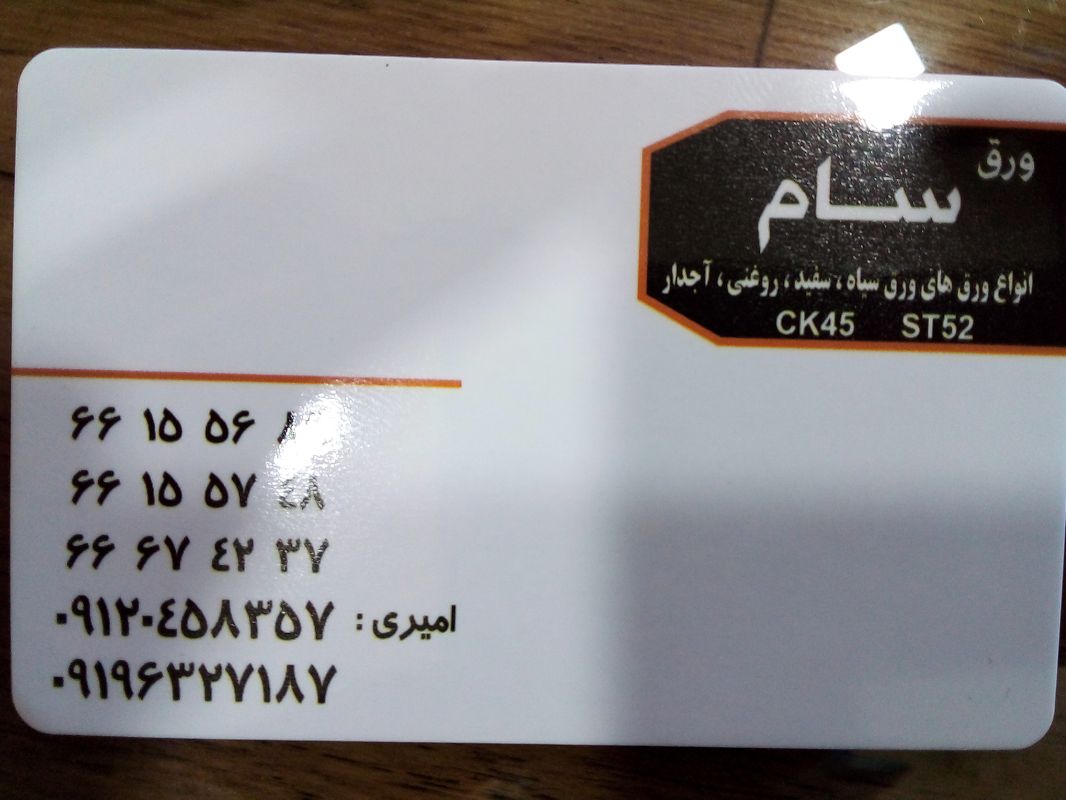 ورق
سام
انواع ورق های ورق سیاه ، سفید ، روغنی ، آجدار
CK45 ST52
۶۶ ۱۵ ۵۶
۶۶ ۱۵ ۵۷ ٤۸
۶۶ ۶۷ ٤۲ ۳۷
امیری : ۰۹۱۲۰٤۵۸۳۵۷
۰۹۱۹۶۳۲۷۱۸۷